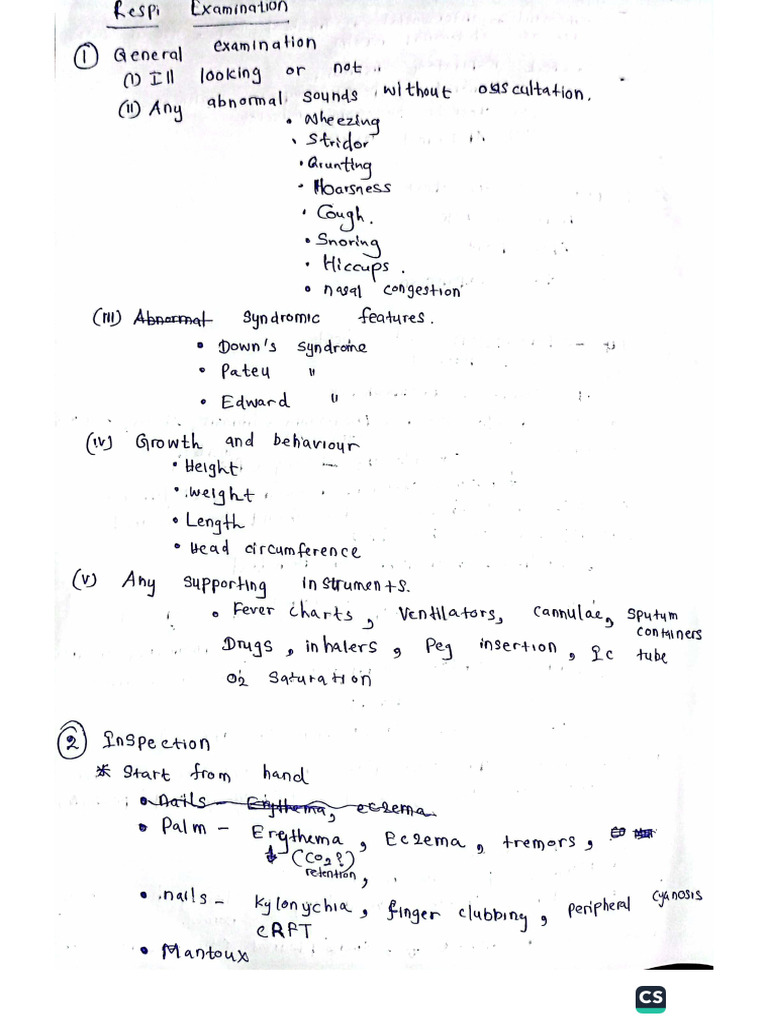 Respi Examination
① General examination
(I) Ill looking or not.
(II) Any abnormal sounds without auscultation.
• Wheezing
• Stridor
• Grunting
• Hoarsness
• Cough.
• Snoring
• Hiccups.
• nasal congestion
(III) Abnormal Syndromic features.
• Down's syndrome
• Pateu "
• Edward "
(IV) Growth and behaviour
• Height
• weight
• Length
• Head circumference
(V) Any supporting instruments.
• Fever charts, Ventilators, cannulae, sputum containers
Drugs, inhalers, Peg insertion, Ic tube
O2 saturation
② Inspection
* Start from hand
• nails - Erythema, eczema.
• Palm - Erythema, Eczema, tremors,
↓ (CO2?)
retention,
• nails - Kylonychia, finger clubbing, peripheral cyanosis
CRFT
• Mantoux
CS